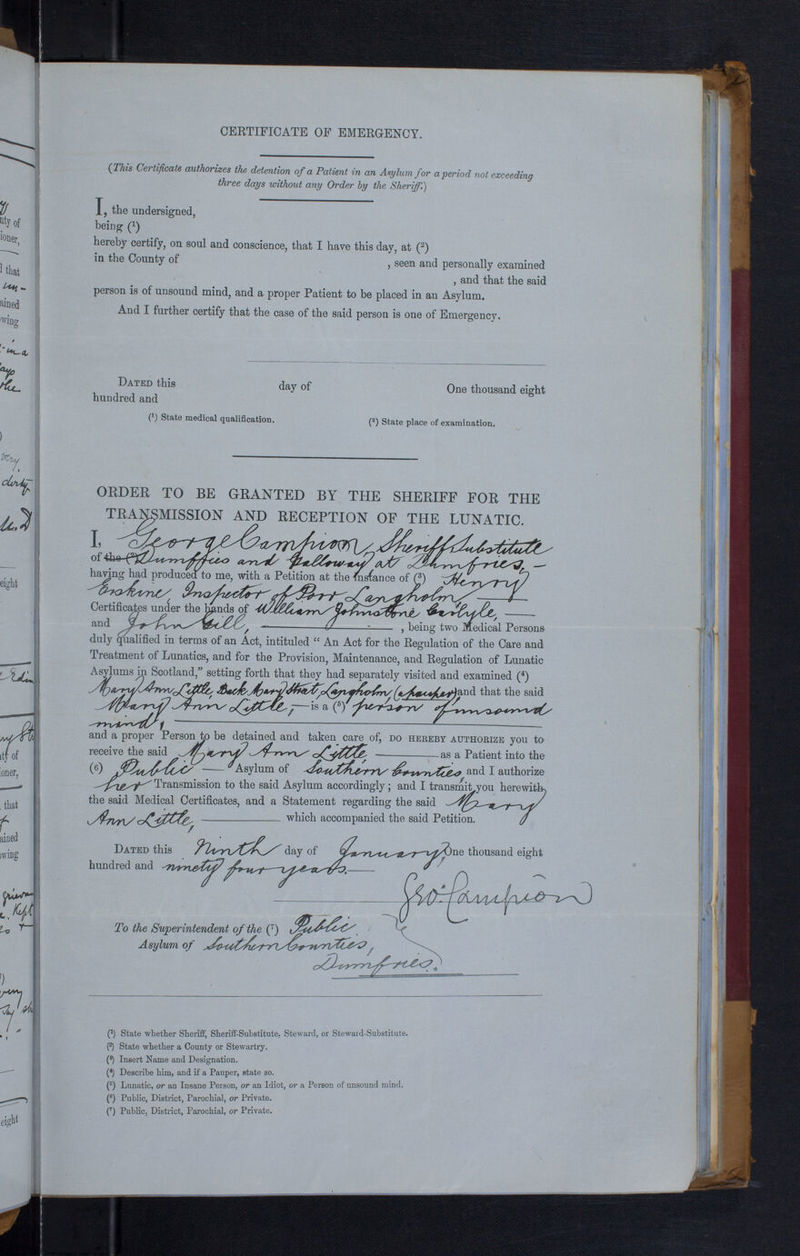 CERTIFICATE OF EMERGENCY.
(This Certificate authorizes the detention of a Patient in an Asylum for a period not exceeding
three days without any Order by the Sheriff.)
I, the undersigned,
being (¹)
hereby certify, on soul and conscience, that I have this day, at (²)
in the County of , seen and personally examined
, and that the said
person is of unsound mind, and a proper Patient to be placed in an Asylum.
And I further certify that the case of the said person is one of Emergency.
DATED this day of One thousand eight
hundred and
(¹) State medical qualification. (²) State place of examination.
ORDER TO BE GRANTED BY THE SHERIFF FOR THE
TRANSMISSION AND RECEPTION OF THE LUNATIC.
I, George Campion, Sheriff Substitute
of the (²) Dumffries and Galloway at Dumfries, —
having had produced to me, with a Petition at the Instance of (³) Henry
Erskine, Inspector of Poor Langholm, —
Certificates under the hands of William Johnstone Carlyle, —
and John Gill, — , being two Medical Persons
duly qualified in terms of an Act, intituled “ An Act for the Regulation of the Care and
Treatment of Lunatics, and for the Provision, Maintenance, and Regulation of Lunatic
Asylums in Scotland,” setting forth that they had separately visited and examined (⁴)
Mary Ann Little, Back Mary Street, Langholm (a pauper) and that the said
Mary Ann Little, — is a (⁵) person of unsound
mind, —
and a proper Person to be detained and taken care of, DO HEREBY AUTHORIZE you to
receive the said Mary Ann Little — as a Patient into the
(⁶) Public — Asylum of Southern Counties, and I authorize
her Transmission to the said Asylum accordingly; and I transmit you herewith,
the said Medical Certificates, and a Statement regarding the said Mary
Ann Little, — which accompanied the said Petition.
DATED this Ninth day of January One thousand eight
hundred and ninety four years. —
Geo: Campion
To the Superintendent of the (⁷) Public
Asylum of Southern Counties,
Dumfries.
(¹) State whether Sheriff, Sheriff-Substitute, Steward, or Steward-Substitute.
(²) State whether a County or Stewartry.
(³) Insert Name and Designation.
(⁴) Describe him, and if a Pauper, state so.
(⁵) Lunatic, or an Insane Person, or an Idiot, or a Person of unsound mind.
(⁶) Public, District, Parochial, or Private.
(⁷) Public, District, Parochial, or Private.